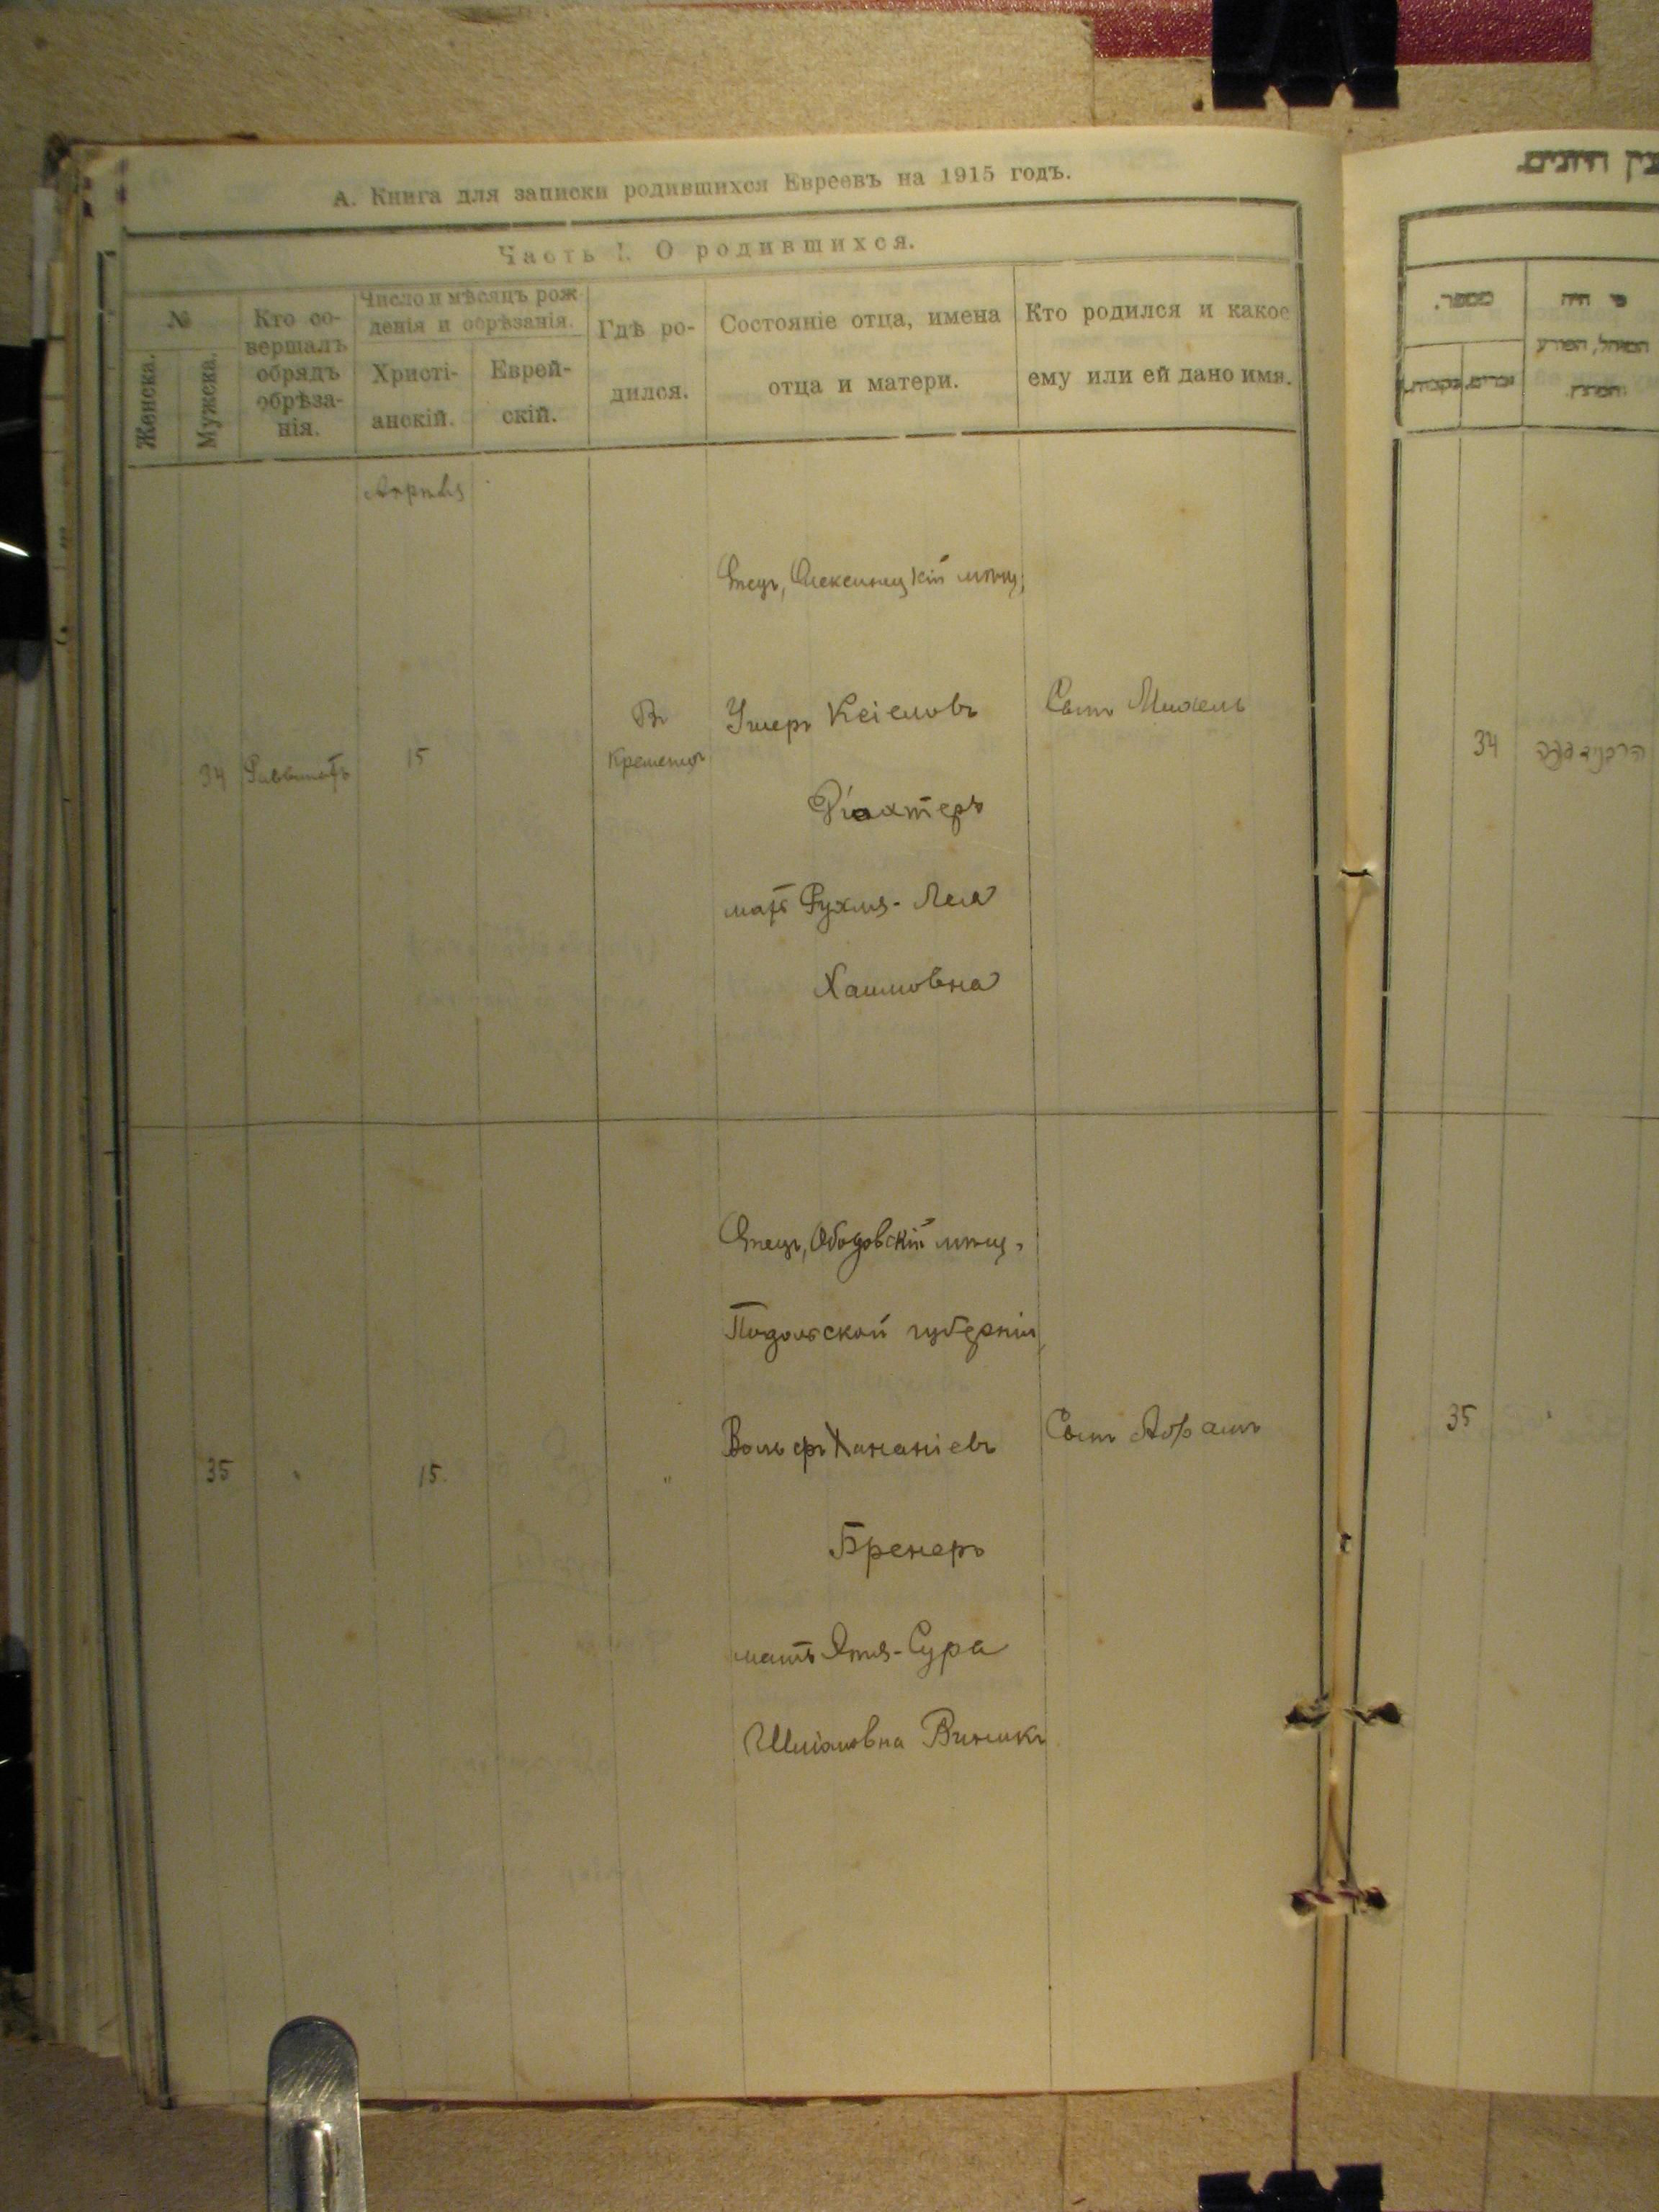 А. Книга для записки родившихся Евреевъ на 1915 годъ.
Часть I. О родившихся.
№
Женска.
Мужска.
Кто со-
вершалъ
обрядъ
обрѣза-
нія.
Число и мѣсяцъ рож-
денія и обрѣзанія.
Христі-
анскій.
Еврей-
скій.
Гдѣ ро-
дился.
Состояніе отца, имена
отца и матери.
Кто родился и какое
ему или ей дано имя.
Апрѣля
34
15
Въ
Кременцѣ
Отецъ, Олексинецкій мѣщ,
Ушеръ Кеіеловъ
мать Рухля-Лея
Хаимовна
Сынъ Михель
35
"
15.
"
Отецъ, Ободовскій мѣщ.
Подольской губерніи,
Вольфъ Хананіевъ
Бренеръ
мать Этля-Сура
Сынъ Абрамъ
מספר.
מי היה
המוהל, הפורע
זכרים.
נקבות.
34
35